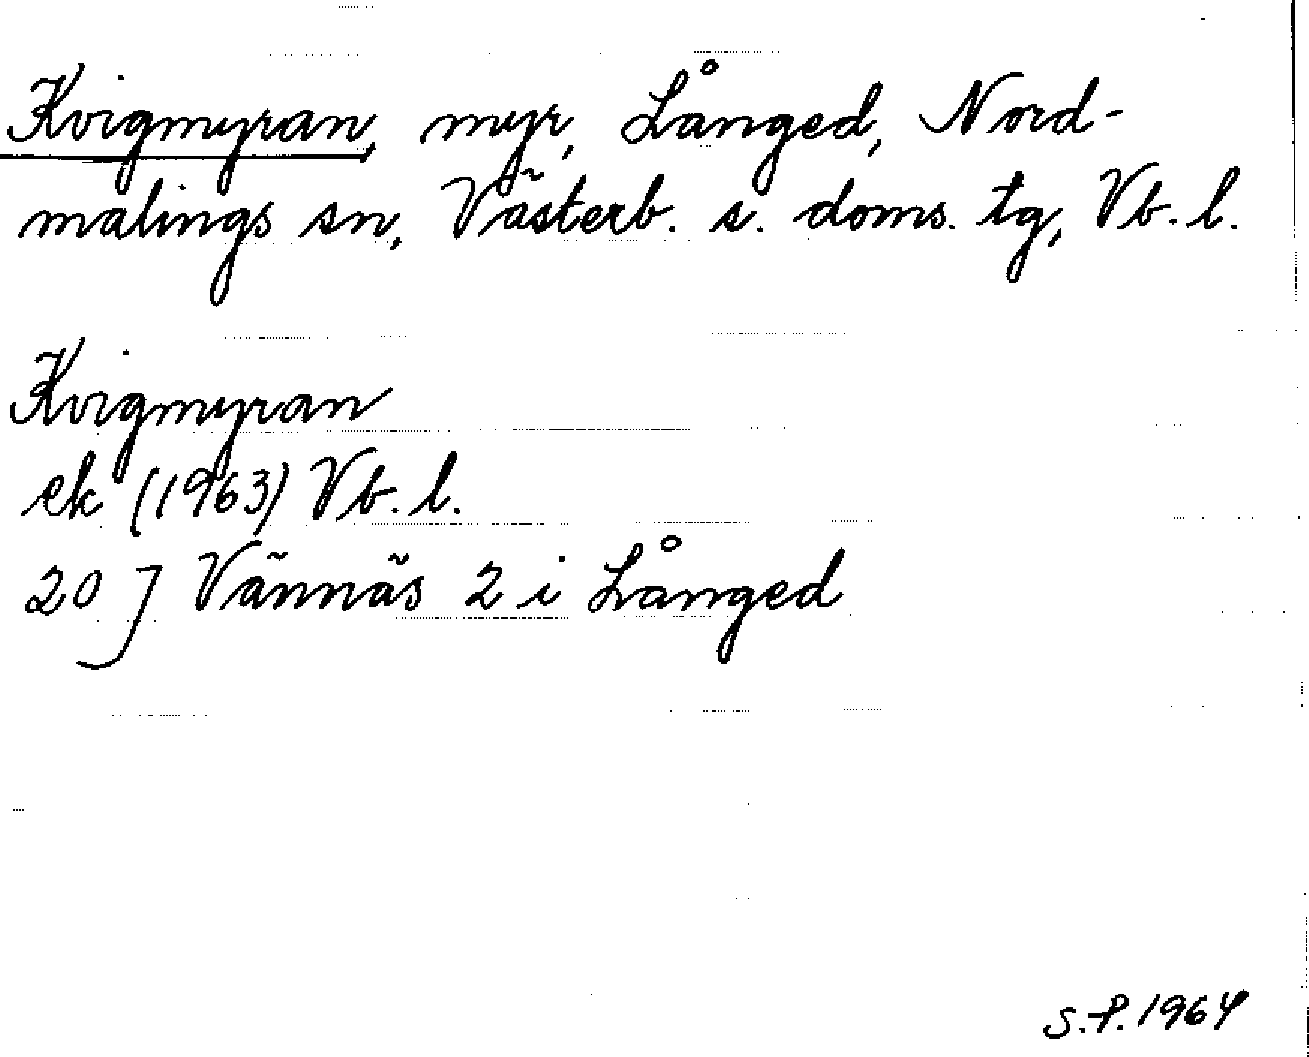 Kvigmyran, myr, Långed, Nord-
malings sn, Västerb. s. doms. tg, Vb. l.
Kvigmyran
ek (1963) Vb. l.
20 J Vännäs 2 i Långed
S.F. 1964